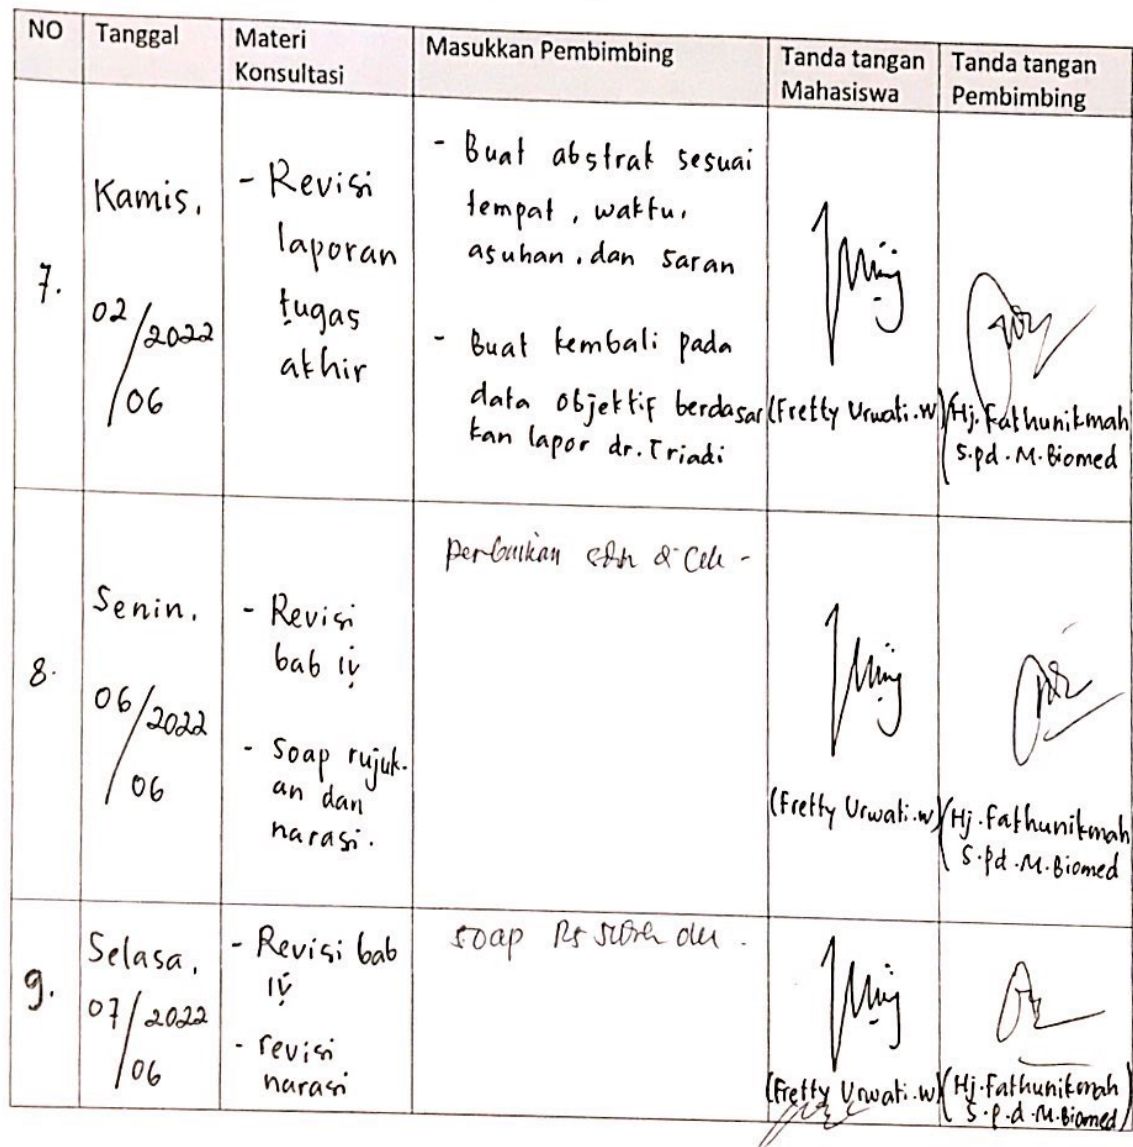 NO
Tanggal
Materi
Konsultasi
Masukkan Pembimbing
Tanda tangan
Mahasiswa
Tanda tangan
Pembimbing
7.
Kamis,
02/2022
/06
- Revisi
laporan
tugas
akhir
- Buat abstrak sesuai
tempat, waktu,
asuhan, dan saran
- Buat kembali pada
data objektif berdasar
kan lapor dr. Triadi
(Fretty Urwati.W)
(Hj. Fathunikmah
S.pd. M. Biomed
8.
Senin,
06/2022
/06
- Revisi
bab IV
- Soap rujuk-
an dan
narasi.
perbaikan
(Fretty Urwati.w)
(Hj. Fathunikmah
S.pd. M. Biomed
9.
Selasa,
07/2022
/06
- Revisi bab
IV
- revisi
narasi
soap Rs
(Fretty Urwati.w)
(Hj. Fathunikmah
S.p.d. M. Biomed)